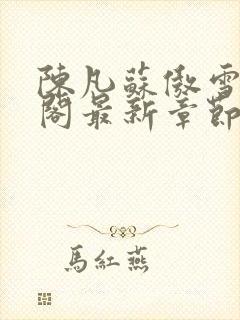 陳凡蘇傲雪
閣最新章節
馬紅燕